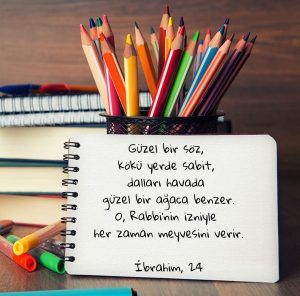 Güzel bir söz,
kökü yerde sabit,
dalları havada
güzel bir ağaca benzer.
O, Rabbi'nin izniyle
her zaman meyvesini verir.
İbrahim, 24